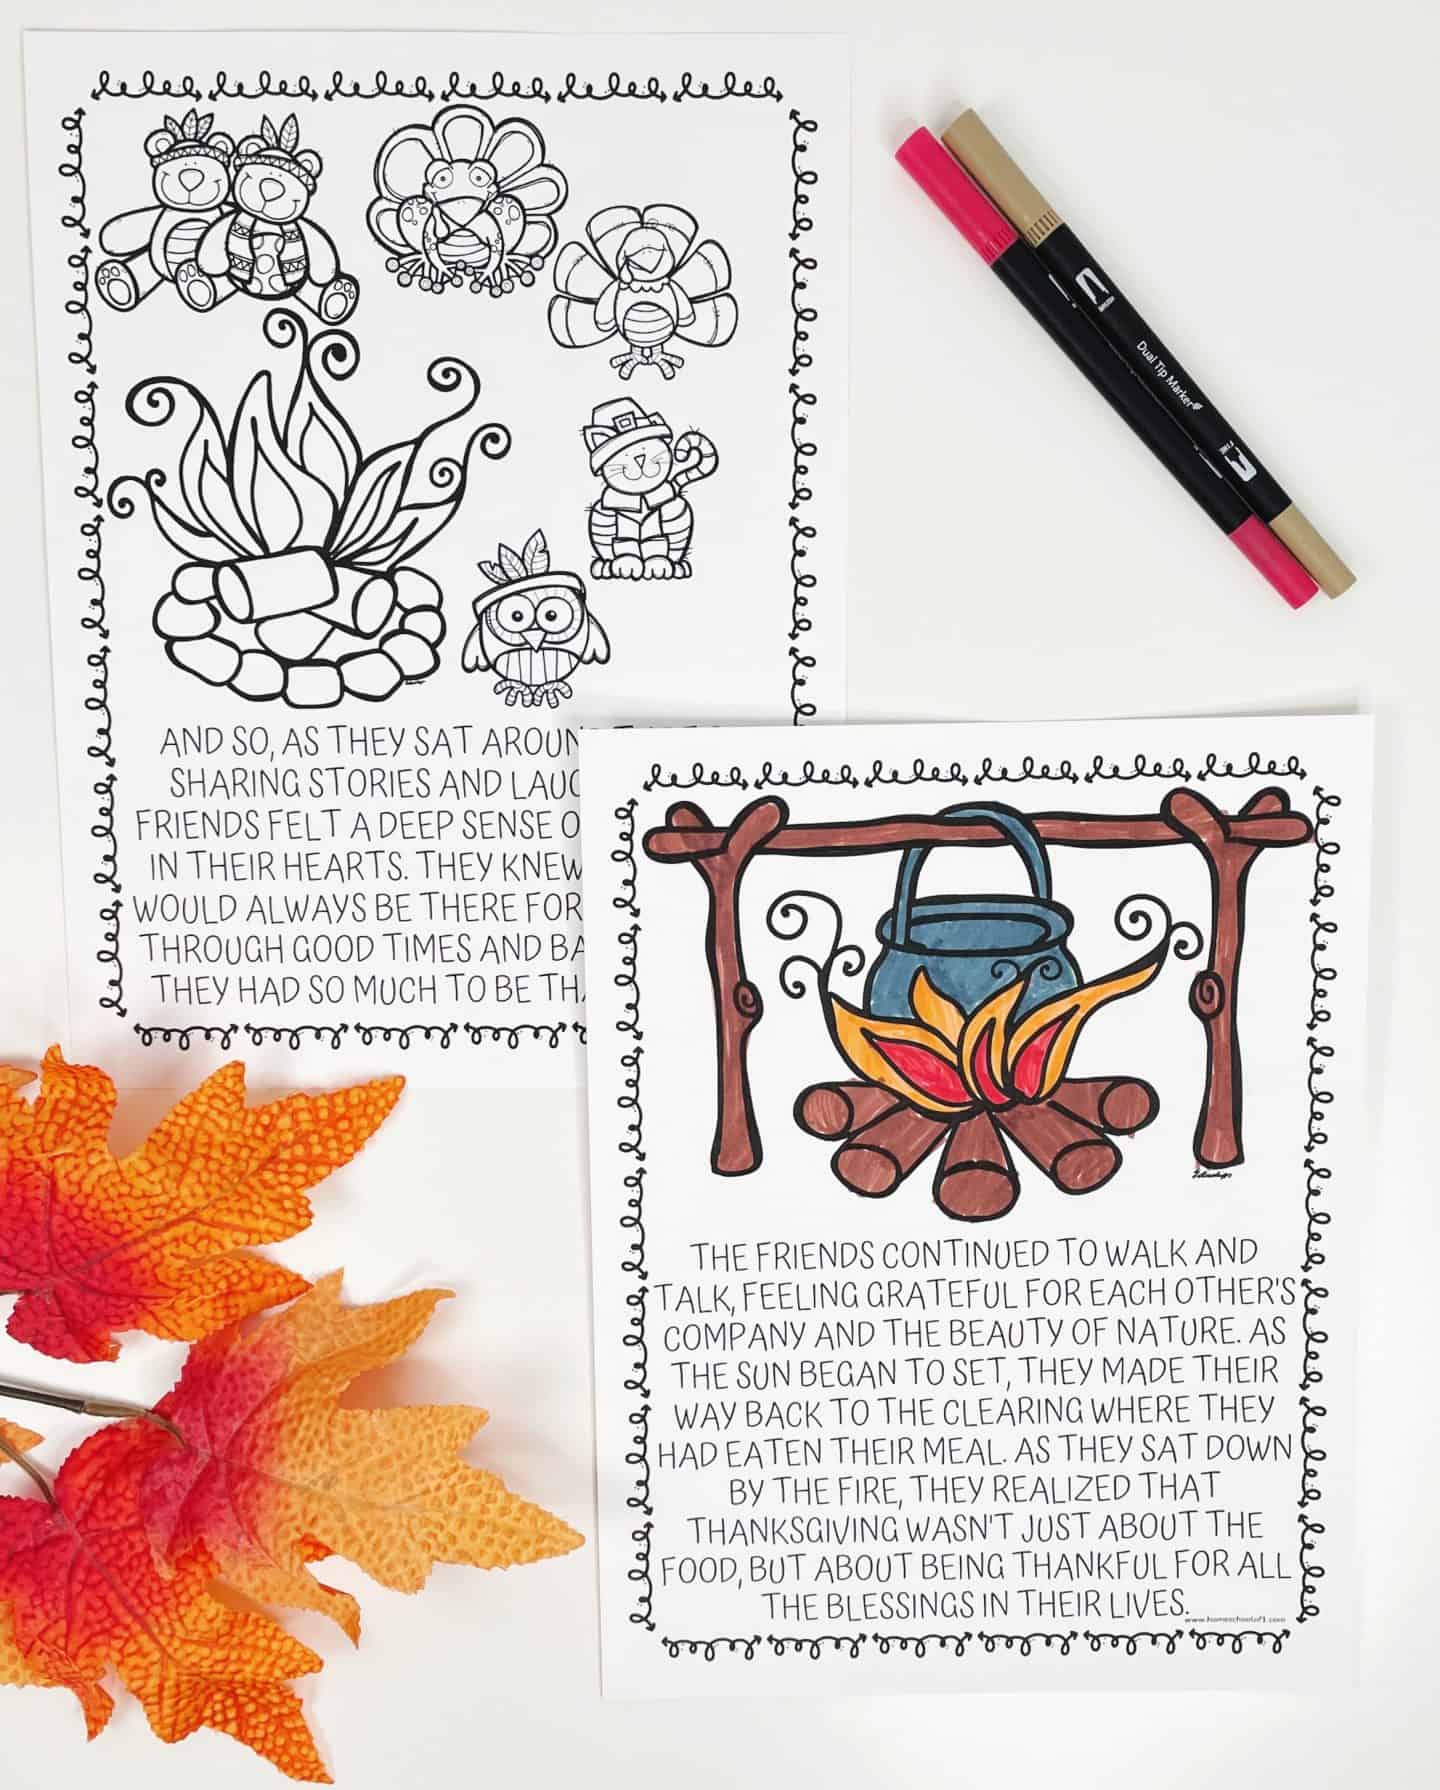 AND SO, AS THEY SAT
SHARING STORIES AND
FRIENDS FELT A DEEP SENSE
IN THEIR HEARTS. THEY KNEW
WOULD ALWAYS BE THERE FOR
THROUGH GOOD TIMES AND
THEY HAD SO MUCH TO BE
Dual Tip Marker
THE FRIENDS CONTINUED TO WALK AND
TALK, FEELING GRATEFUL FOR EACH OTHER'S
COMPANY AND THE BEAUTY OF NATURE. AS
THE SUN BEGAN TO SET, THEY MADE THEIR
WAY BACK TO THE CLEARING WHERE THEY
HAD EATEN THEIR MEAL. AS THEY SAT DOWN
BY THE FIRE, THEY REALIZED THAT
THANKSGIVING WASN'T JUST ABOUT THE
FOOD, BUT ABOUT BEING THANKFUL FOR ALL
THE BLESSINGS IN THEIR LIVES.
www.homeschoolof1.com